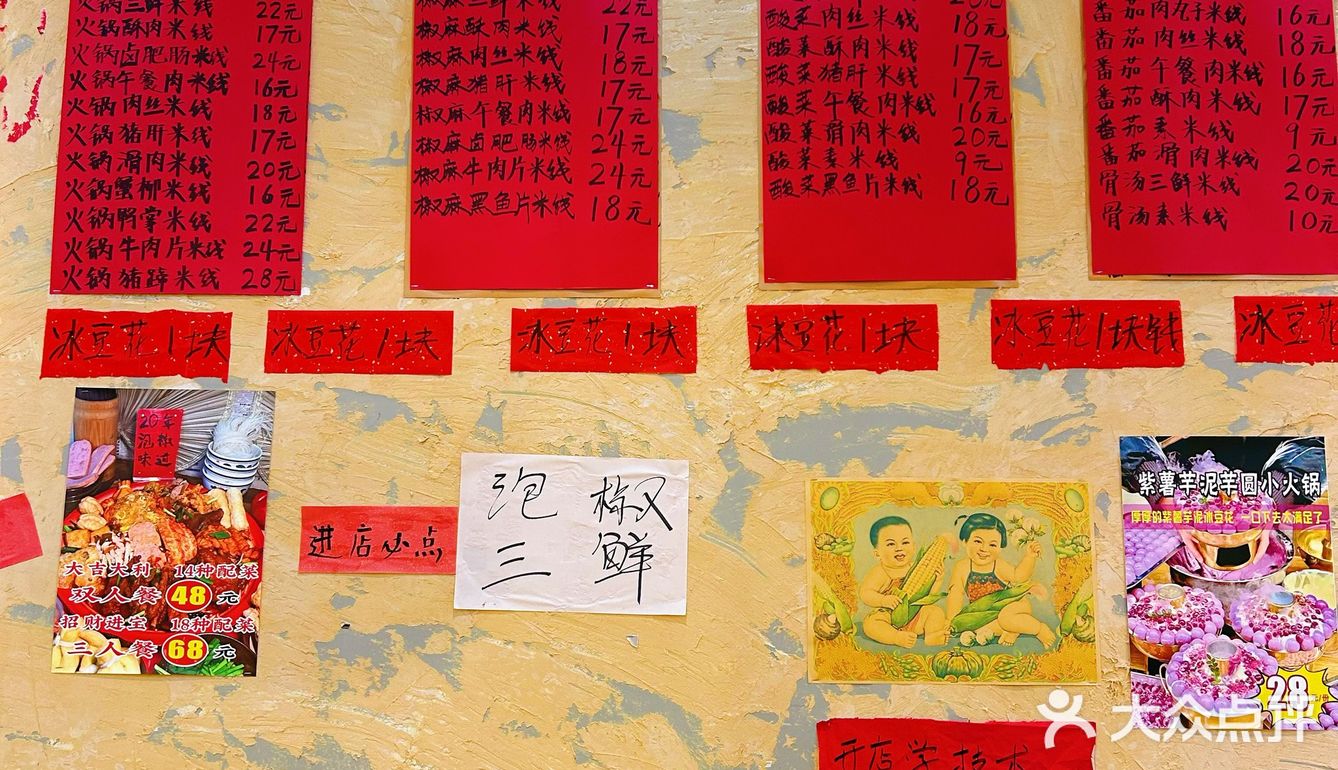 火锅三鲜米线 22元
火锅酥肉米线 17元
火锅卤肥肠米线 24元
火锅午餐肉米线 16元
火锅肉丝米线 18元
火锅猪肝米线 17元
火锅滑肉米线 20元
火锅蟹柳米线 16元
火锅鸭掌米线 22元
火锅牛肉片米线 24元
火锅猪蹄米线 28元
椒麻三鲜米线 22元
椒麻酥肉米线 17元
椒麻肉丝米线 18元
椒麻猪肝米线 17元
椒麻午餐肉米线 17元
椒麻卤肥肠米线 24元
椒麻牛肉片米线 24元
椒麻黑鱼片米线 18元
酸菜肉丝米线 18元
酸菜酥肉米线 17元
酸菜猪肝米线 17元
酸菜午餐肉米线 16元
酸菜滑肉米线 20元
酸菜素米线 9元
酸菜黑鱼片米线 18元
番茄肉丸子米线 16元
番茄肉丝米线 18元
番茄午餐肉米线 16元
番茄酥肉米线 17元
番茄素米线 9元
番茄滑肉米线 20元
骨汤三鲜米线 20元
骨汤素米线 10元
冰豆花1块
冰豆花1块
冰豆花1块
冰豆花1块
冰豆花1块钱
冰豆花
20年
泡椒
味道
大吉大利 14种配菜
双人餐 48元
招财进宝 18种配菜
三人餐 68元
进店必点
泡椒
三鲜
紫薯芋泥芋圆小火锅
厚厚的紫薯芋泥冰豆花 一口下去太满足了
28
开店学技术
大众点评